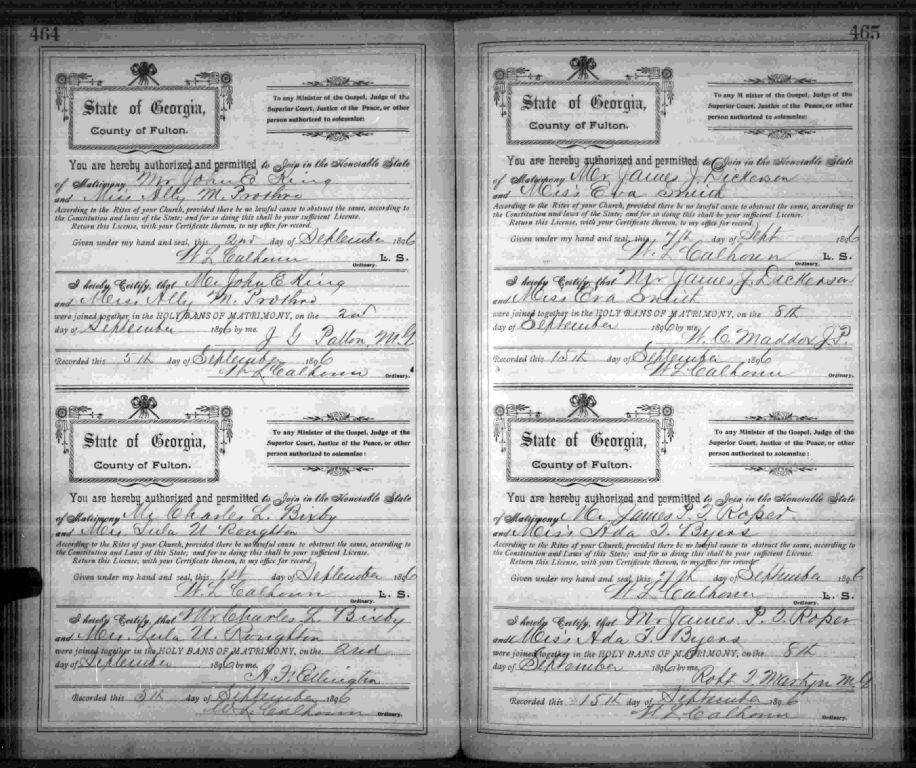 464
State of Georgia,
County of Fulton.
To any Minister of the Gospel, Judge of the
Superior Court, Justice of the Peace, or other
person authorized to solemnize:
You are hereby authorized and permitted to Join in the Honorable State
of Matrimony Mr John E King
and Miss Ally M. Prothro
According to the Rites of your Church, provided there be no lawful cause to obstruct the same, according to
the Constitution and laws of the State; and for so doing this shall be your sufficient License.
Return this License, with your Certificate thereon, to my office for record.
Given under my hand and seal, this 2nd day of September 1896
W L Calhoun L. S.
Ordinary.
I hereby Certify, that Mr John E King
and Miss Ally M. Prothro
were joined together in the HOLY BANS OF MATRIMONY, on the 2nd
day of September 1896 by me.
J G Patton, M.G.
Recorded this 5th day of September 1896
W L Calhoun Ordinary.
State of Georgia,
County of Fulton.
To any Minister of the Gospel, Judge of the
Superior Court, Justice of the Peace, or other
person authorized to solemnize:
You are hereby authorized and permitted to Join in the Honorable State
of Matrimony Mr Charles L. Bixby
and Miss Lula U. Roughton
According to the Rites of your Church, provided there be no lawful cause to obstruct the same, according to
the Constitution and Laws of this State; and for so doing this shall be your sufficient License.
Return this License, with your Certificate thereon, to my office for record.
Given under my hand and seal, this 1st day of September 1896
W L Calhoun L. S.
Ordinary.
I hereby Certify, that Mr Charles L Bixby
and Miss Lula U. Roughton
were joined together in the HOLY BANS OF MATRIMONY, on the 2nd
day of September 1896 by me.
Ellington
Recorded this 5th day of September 1896
W L Calhoun Ordinary.
465
State of Georgia,
County of Fulton.
To any Minister of the Gospel, Judge of the
Superior Court, Justice of the Peace, or other
person authorized to solemnize:
You are hereby authorized and permitted to Join in the Honorable State
of Matrimony Mr James J. Dickerson
and Miss Eva Smith
According to the Rites of your Church, provided there be no lawful cause to obstruct the same, according to
the Constitution and laws of the State; and for so doing this shall be your sufficient License.
Return this License, with your Certificate thereon, to my office for record.
Given under my hand and seal, this 7th day of Sept 1896
W L Calhoun L. S.
Ordinary.
I hereby Certify, that Mr James J. Dickerson
and Miss Eva Smith
were joined together in the HOLY BANS OF MATRIMONY, on the 8th
day of September 1896 by me.
W. C. Maddox J.P.
Recorded this 15th day of September 1896
W L Calhoun Ordinary.
State of Georgia,
County of Fulton.
To any Minister of the Gospel, Judge of the
Superior Court, Justice of the Peace, or other
person authorized to solemnize:
You are hereby authorized and permitted to Join in the Honorable State
of Matrimony Mr James P. T Roper
and Miss Ada T. Byers
According to the Rites of your Church, provided there be no lawful cause to obstruct the same, according to
the Constitution and Laws of this State; and for so doing this shall be your sufficient License.
Return this License, with your Certificate thereon, to my office for record.
Given under my hand and seal, this 7th day of September 1896
W L Calhoun L. S.
Ordinary.
I hereby Certify, that Mr James P. T. Roper
and Miss Ada T. Byers
were joined together in the HOLY BANS OF MATRIMONY, on the 8th
day of September 1896 by me.
Robt M.G
Recorded this 15th day of September 1896
W L Calhoun Ordinary.